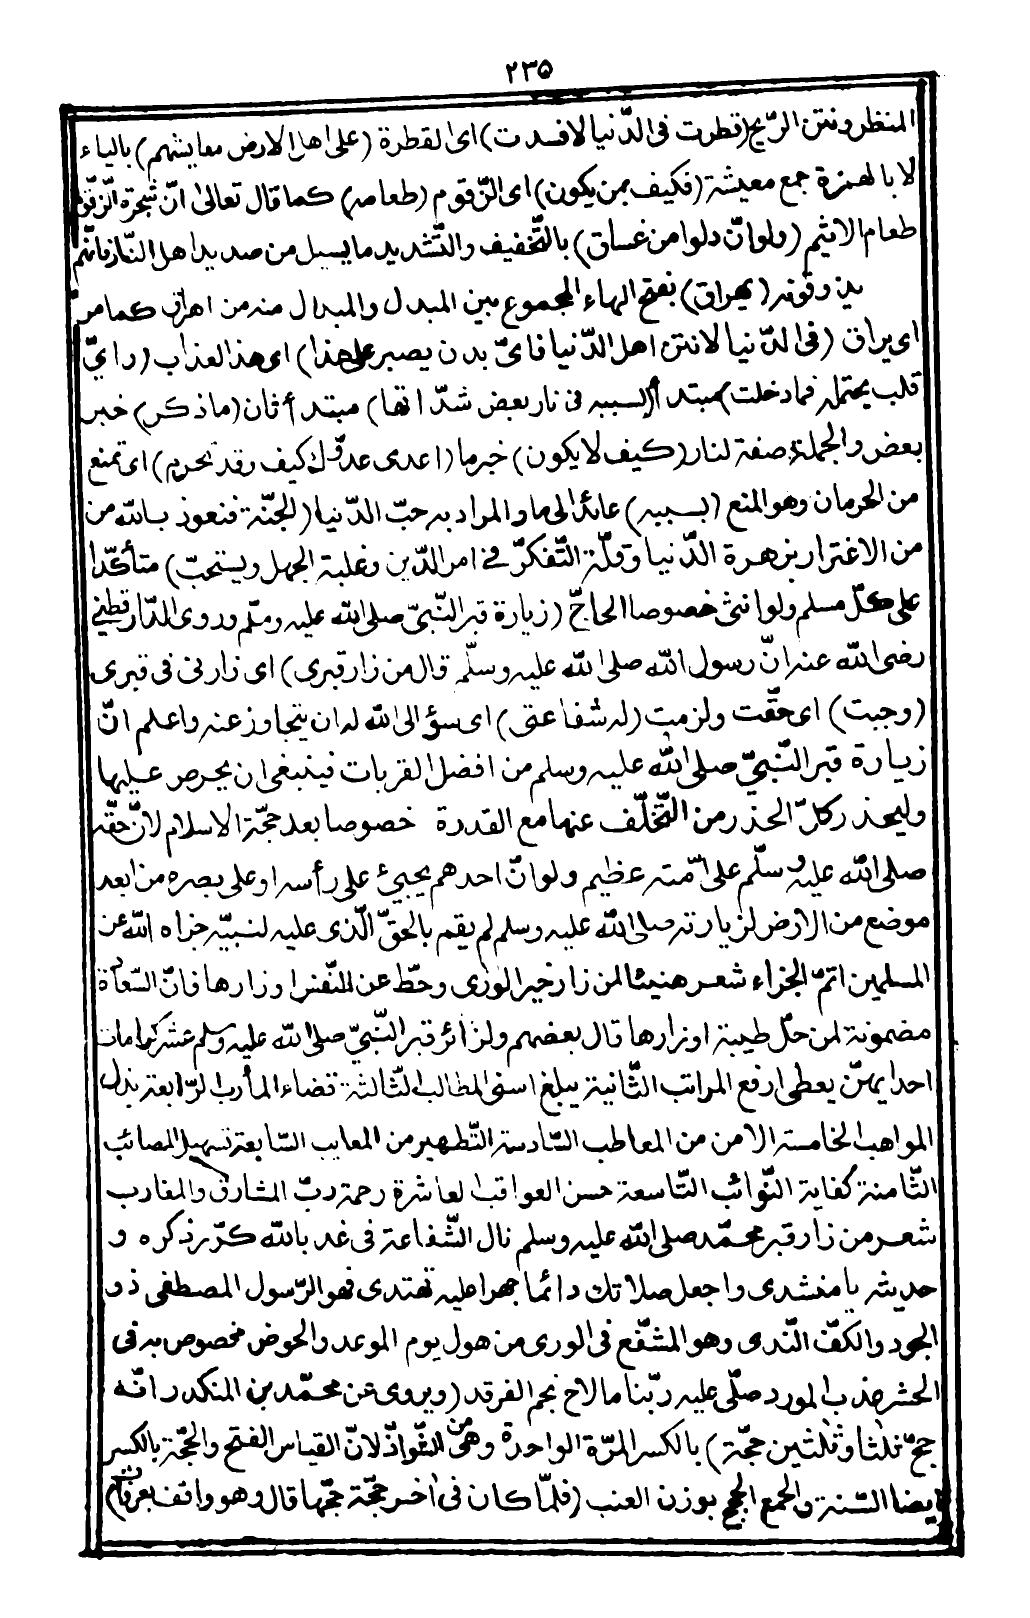 ٢٣٥
المنظر ونتن الرّيح (قطرت فى الدّنيا لافسدت) اى القطرة (على اهل الارض معايشهم) بالياء
لا بالهمزة جمع معيشة (فكيف بمن يكون) اى الزّقوم (طعامه) كما قال تعالى انّ شجرة الزّقّوم
طعام الاثيم (ولو انّ دلوا من غساق) بالتّخفيف والتّشديد ما يسيل من صديد اهل النّار فانّهم
يذوقونه (يهراق) بفتح الهاء المجموع بين المبدل والمبدل منه من اهراق كما مر
اى يراق (فى الدّنيا لانتن اهل الدّنيا فاىّ بدن يصبر على هذا) اى هذا العذاب (واىّ
قلب يحتمله فما دخلت) مبتدأ السببه فى نار بعض شدّاتها) مبتدأ ثان (ما ذكر) خبر
بعض والجملة صفة لنار (كيف لا يكون) خبر ما (اعدى عدوّك كيف وقد تحرم) اى تمنع
من الحرمان وهو المنع (بسببه) عائد الى ما والمراد به حبّ الدّنيا (الجنّة فنعوذ بالله من
من الاغترار بزهرة الدّنيا وقلّة التّفكّر فى امر الدّين وغلبة الجهل ويستحبّ) متأكّدا
على كلّ مسلم ولو انثى خصوصا الحاجّ (زيارة قبر النّبىّ صلى الله عليه وسلّم وروى الدّارقطنى
رضى الله عنه انّ رسول الله صلى الله عليه وسلّم قال من زار قبرى) اى زارنى فى قبرى
(وجبت) اى حقّت ولزمت (له شفاعتى) اى سؤالى الله له ان يتجاوز عنه واعلم انّ
زيارة قبر النّبىّ صلى الله عليه وسلم من افضل القربات فينبغى ان يحرص عليها
وليحذر كلّ الحذر من التّخلّف عنها مع القدرة خصوصا بعد حجّة الاسلام لانّ حقّه
صلى الله عليه وسلّم على امّته عظيم ولو انّ احدهم يجيئ على رأسه او على بصره من ابعد
موضع من الارض لزيارته صلى الله عليه وسلم لم يقم بالحقّ الّذى عليه لنبيّه جزاه الله عن
المسلمين اتمّ الجزاء شعر هنيئا لمن زار خير الورى وحطّ عن النّفس اوزارها فانّ السّعادة
مضمونة لمن حلّ طيبة او زارها قال بعضهم ولزائر قبر النّبىّ صلى الله عليه وسلم عشر كرامات
احديهنّ يعطى ارفع المراتب الثّانية يبلغ اسنى المطالب الثّالثة قضاء المأرب الرّابعة بذل
المواهب الخامسة الامن من المعاطب السّادسة التّطهير من المعايب السّابعة تسهيل المصائب
الثّامنة كفاية النّوائب التّاسعة حسن العواقب العاشرة رحمة ربّ المشارق والمغارب
شعر من زار قبر محمّد صلى الله عليه وسلم نال الشّفاعة فى غد بالله كرّر ذكره و
حديثه يا منشدى واجعل صلاتك دائما جهرا عليه تهتدى فهو الرّسول المصطفى ذو
الجود والكفّ النّدى وهو المشفّع فى الورى من هول يوم الموعد والحوض مخصوص به فى
الحشر عذب المورد صلّى عليه ربّنا ما لاح نجم الفرقد (ويروى عن محمّد بن المنكدر انّه
حجّ ثلثا وثلثين حجّة) بالكسر المرّة الواحدة وهى من الشّواذّ لانّ القياس الفتح والحجّة بالكسر
ايضا السّنة والجمع الحجج بوزن العنب (فلمّا كان فى اخر حجّة حجّها قال وهو واقف بعرفات)